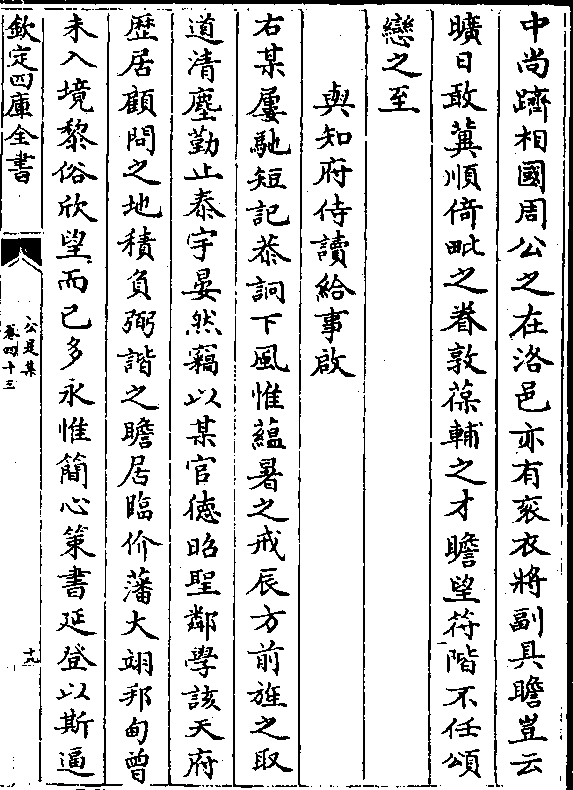 中尚躋相國周公之在洛邑亦有袞衣將副具瞻豈云
曠日敢冀順倚毗之眷敦葆輔之才瞻望符階不任頌
戀之至
與知府侍讀給事啟
右某屢馳短記恭詗下風惟蘊暑之戒辰方前旌之取
道清塵勤止泰宇晏然竊以某官德昭聖鄰學該天府
歴居顧問之地積負弼諧之瞻居臨价藩大翊邦甸曾
未入境黎俗欣望而已多永惟簡心策書延登以斯逼
欽定四庫全書
公是集
卷四十三
十九